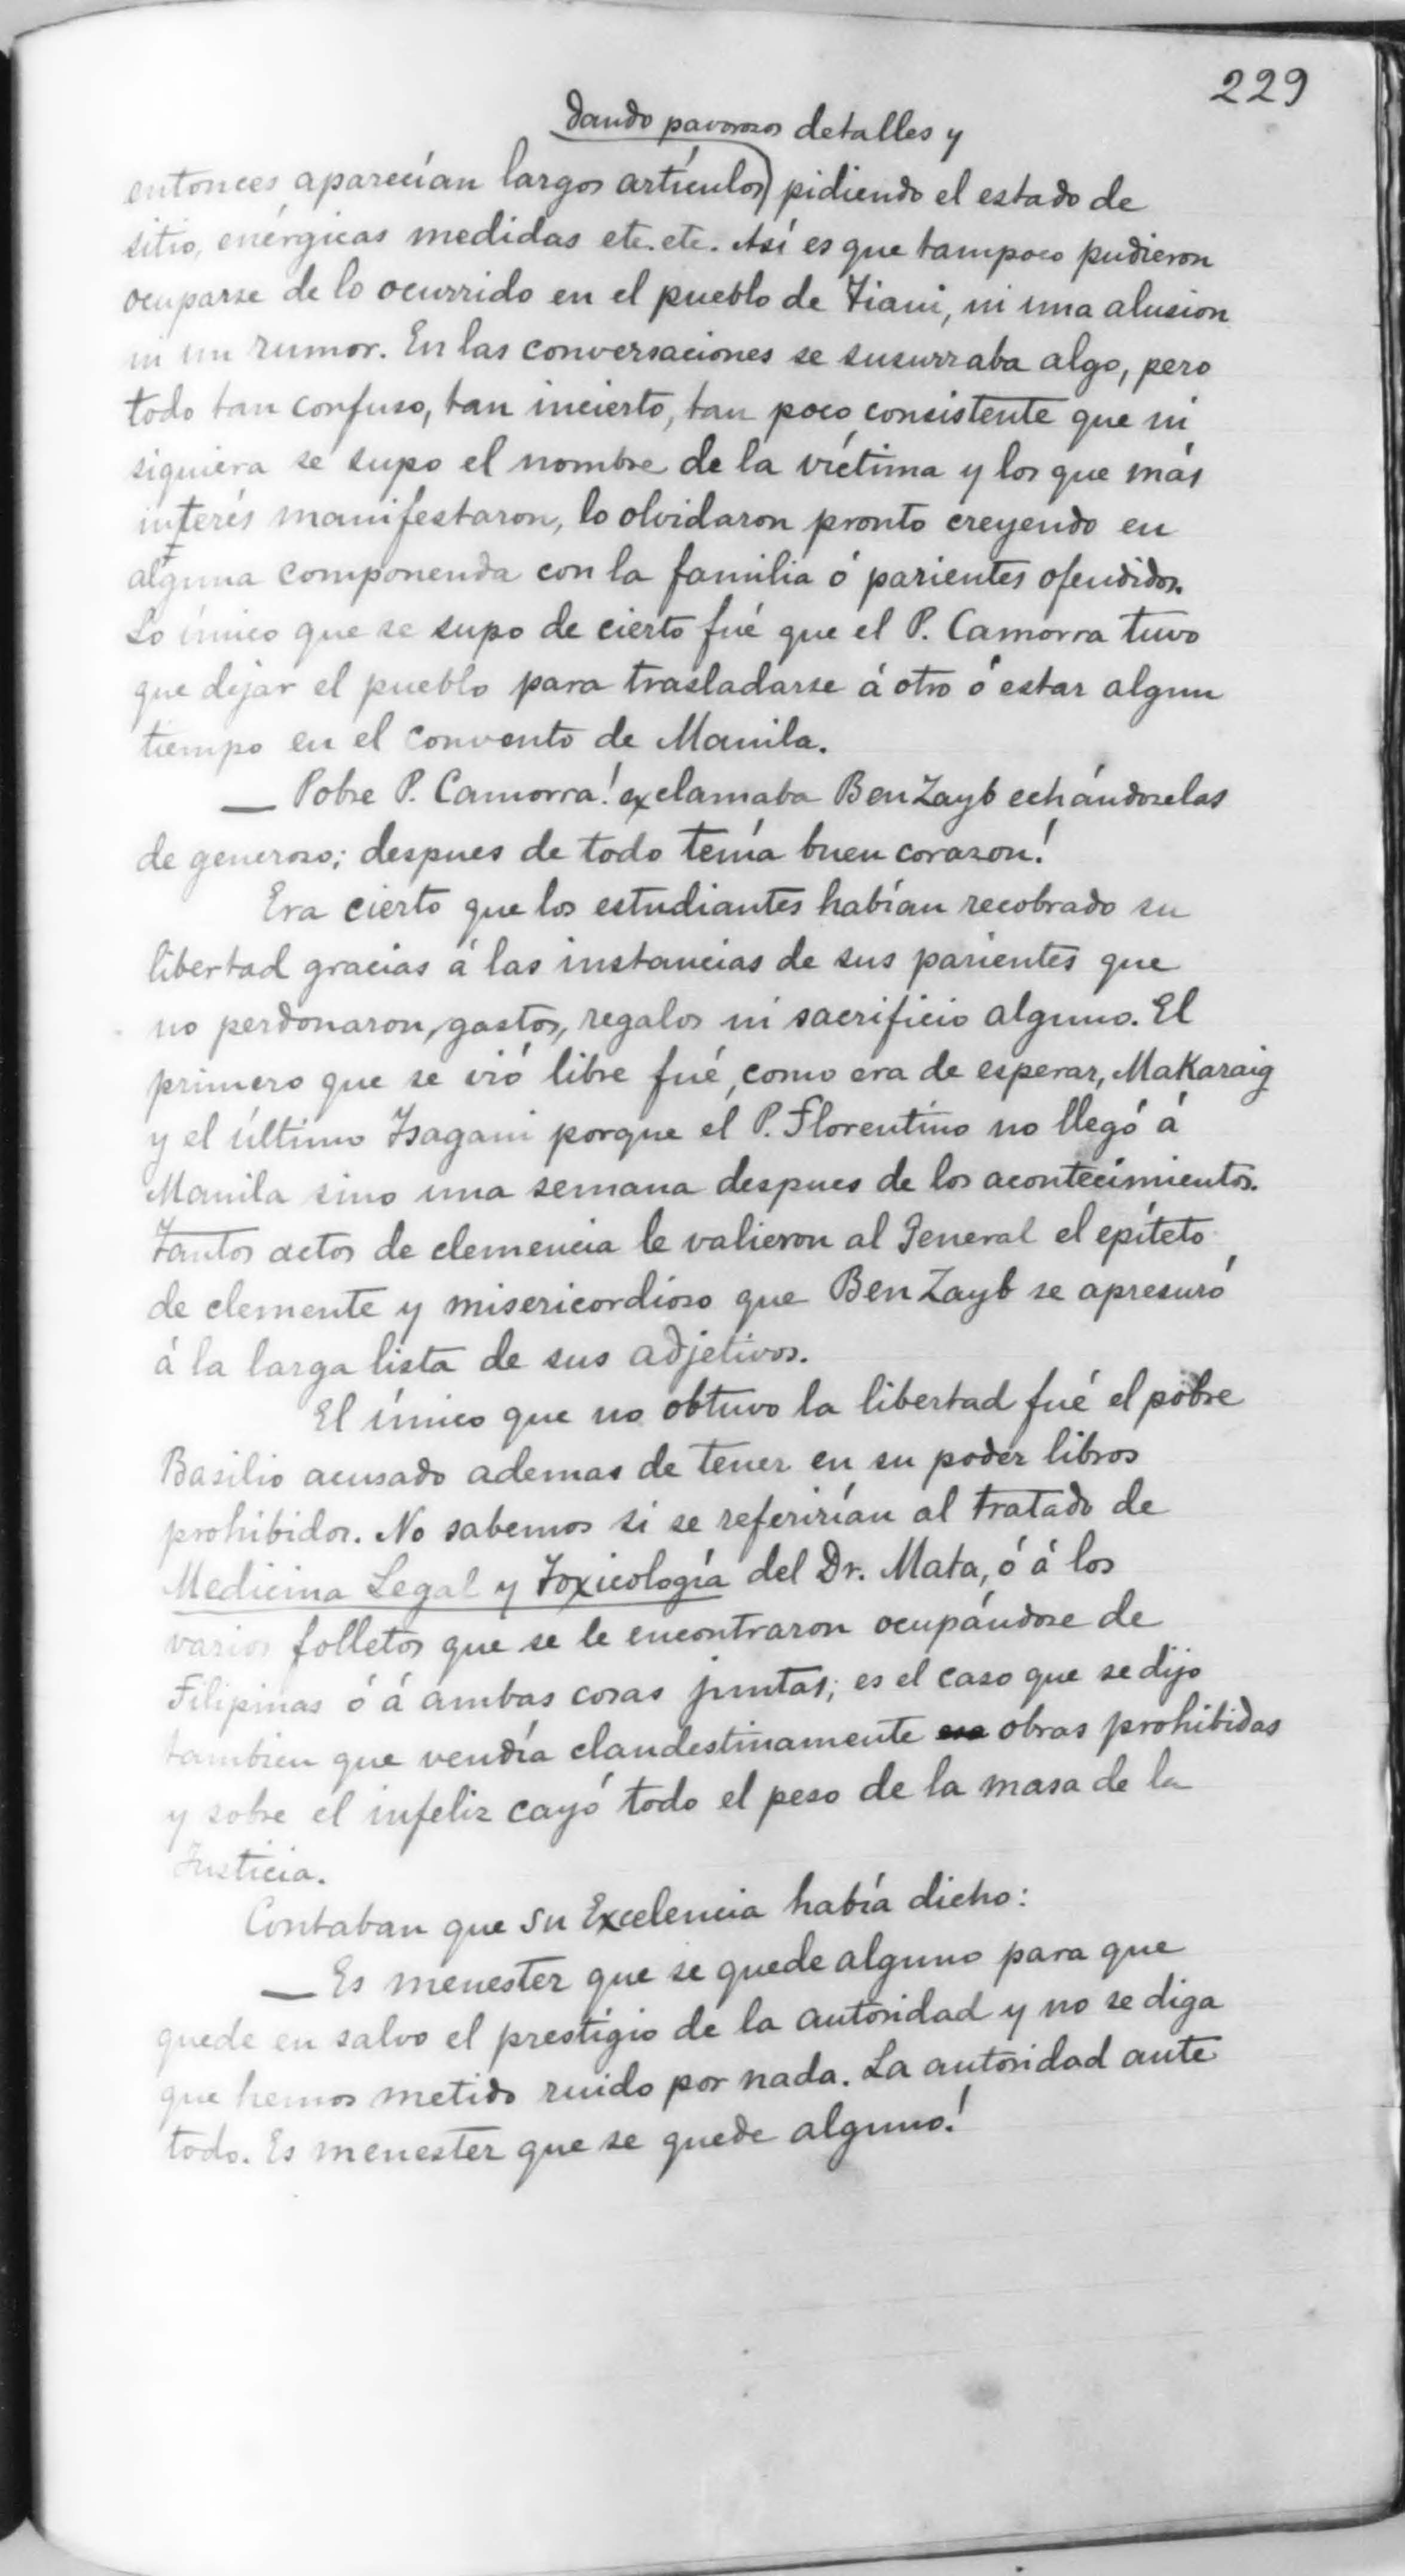 229
dando pavorosos detalles y
entonces aparecían largos artículos pidiendo el estado de
sitio, enérgicas medidas etc. etc. Así es que tampoco pudieron
ocuparse de lo ocurrido en el pueblo de Tiani, ni una alusion
ni un rumor. En las conversaciones se susurraba algo, pero
todo tan confuso, tan incierto, tan poco consistente que ni
siquiera se supo el nombre de la víctima y los que más
interés manifestaron, lo olvidaron pronto creyendo en
alguna componenda con la familia ó parientes ofendidos.
Lo único que se supo de cierto fué que el P. Camorra tuvo
que dejar el pueblo para trasladarse á otro ó estar algun
tiempo en el convento de Manila.
— Pobre P. Camorra! exclamaba Ben Zayb echándoselas
de generoso; despues de todo tenía buen corazon!
Era cierto que los estudiantes habían recobrado su
libertad gracias á las instancias de sus parientes que
no perdonaron, gastos, regalos ni sacrificio alguno. El
primero que se vió libre fué, como era de esperar, Makaraig
y el último Isagani porque el P. Florentino no llegó á
Manila sino una semana despues de los acontecimientos.
Tantos actos de clemencia le valieron al General el epíteto
de clemente y misericordioso que Ben Zayb se apresuró
á la larga lista de sus adjetivos.
El único que no obtuvo la libertad fué el pobre
Basilio acusado ademas de tener en su poder libros
prohibidos. No sabemos si se referirían al tratado de
Medicina Legal y Toxicología del Dr. Mata, ó á los
varios folletos que se le encontraron ocupándose de
Filipinas ó á ambas cosas juntas; es el caso que se dijo
tambien que vendía clandestinamente obras prohibidas
y sobre el infeliz cayó todo el peso de la masa de la
Justicia.
Contaban que Su Excelencia había dicho:
— Es menester que se quede alguno para que
quede en salvo el prestigio de la autoridad y no se diga
que hemos metido ruido por nada. La autoridad ante
todo. Es menester que se quede alguno!